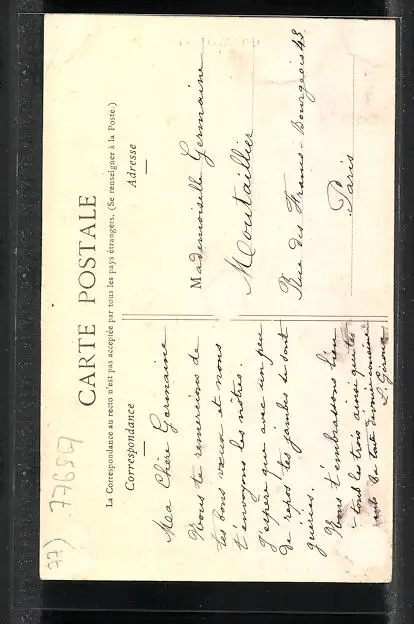 CARTE POSTALE
La Correspondance au recto n'est pas acceptée par tous les pays étrangers. (Se renseigner à la Poste.)
Correspondance
Adresse
Ma Chère Germaine
Nous te remercions de
tes bons vœux et nous
t'envoyons les nôtres.
J'espère que avec un peu
de repos tes jambes se sont
guéries.
Nous t'embrassons bien
tous les trois ainsi que
toute
L.
Mademoiselle Germaine
Moutaillier
Rue des Francs-Bourgeois 43
Paris
77) 776867